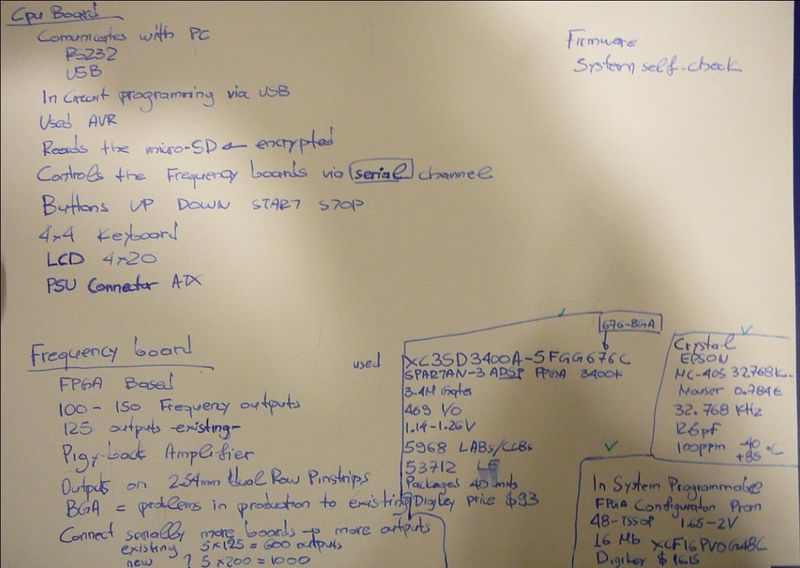 Cpu Board
Comunicates with PC
RS232
USB
In Circuit programming via USB
Used AVR
Reads the micro-SD ← encrypted
Controls the Frequency boards via serial channel
Buttons UP DOWN START STOP
4x4 Keyboard
LCD 4x20
PSU Connector ATX
Firmware
System self-check
Frequency board
FPGA Based
100 - 150 Frequency outputs
125 outputs -existing-
Pigy-back Amplifier
Outputs on 2.54mm dual Row Pinstrips
BGA = problems in production to existing
Connect serially more boards → more outputs
existing 5x125 = 600 outputs
new ? 5x200 = 1000
676-BGA
used XC3SD3400A-5FGG676C
SPARTAN-3 ADSP FPGA 3400k
3.4M Gates
469 I/O
1.14-1.26V
5968 LABs/CLBs
53712 LE
Packages 40 units
Digikey price $93
Crystal
EPSON
MC-405 32.768K
Mouser 0.784€
32.768 KHz
12.5pF
100ppm -40 +85 °C
In System Programmable
FPGA Configuration Prom
48-TSSOP 1.65-2V
16 Mb XCF16PVOG48C
Digikey $